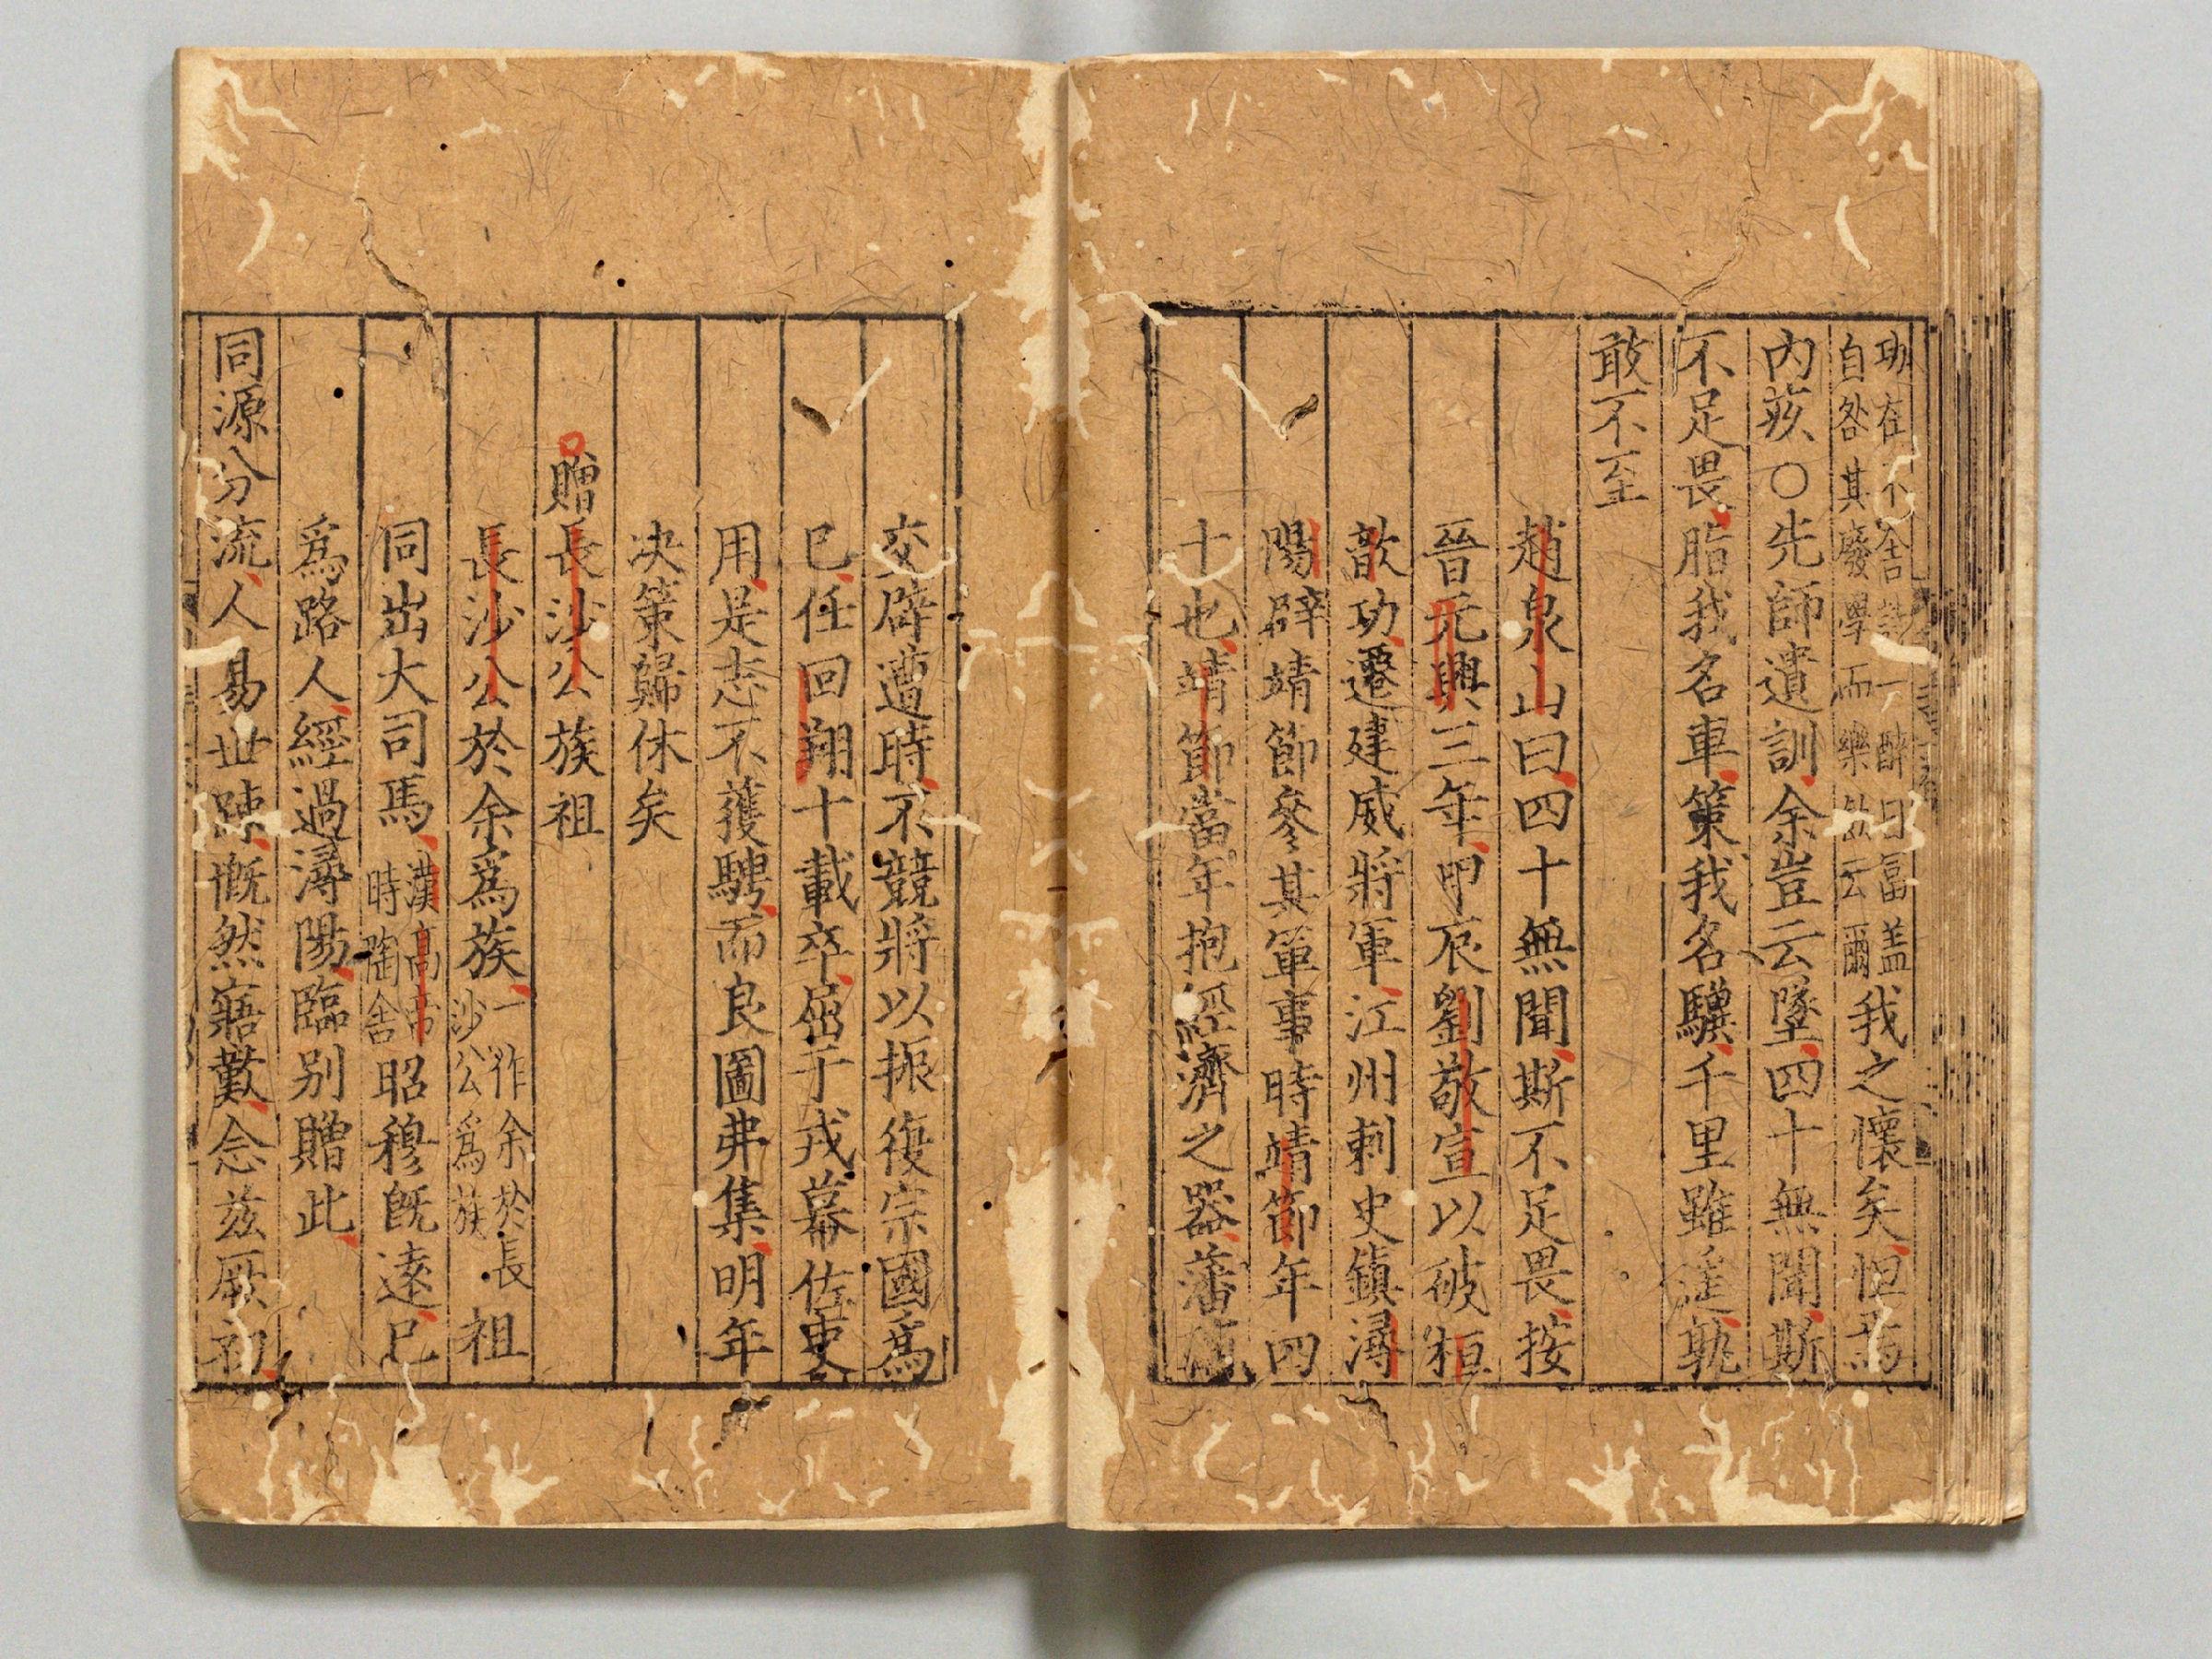 功在不舍詩一醉日富盖
自咎其廢學而樂飮云爾
我之懷矣怛焉
內疚〇先師遺訓余豈云墜四十無聞斯
不足畏脂我名車策我名驥千里雖遙孰
敢不至
趙泉山曰四十無聞斯不足畏按
晉元興三年甲辰劉敬宣以破桓
歆功遷建威將軍江州刺史鎭潯
陽辟靖節參其軍事時靖節年四
十也靖節當年抱經濟之器藩輔
交辟遭時不競將以振復宗國爲
已任回翔十載卒屈于戎幕佐吏
用是志不獲騁而良圖弗集明年
决策歸休矣
贈長沙公族祖
長沙公於余爲族
一作余於長
沙公爲族
祖
同出大司馬
漢高帝
時陶舍
昭穆旣逺已
爲路人經過潯陽臨别贈此
同源分流人易世踈慨然寤歎念兹厥初